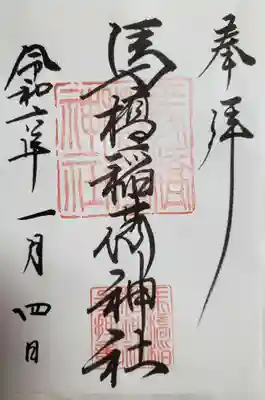 奉拝
馬橋稲荷神社
令和六年一月四日